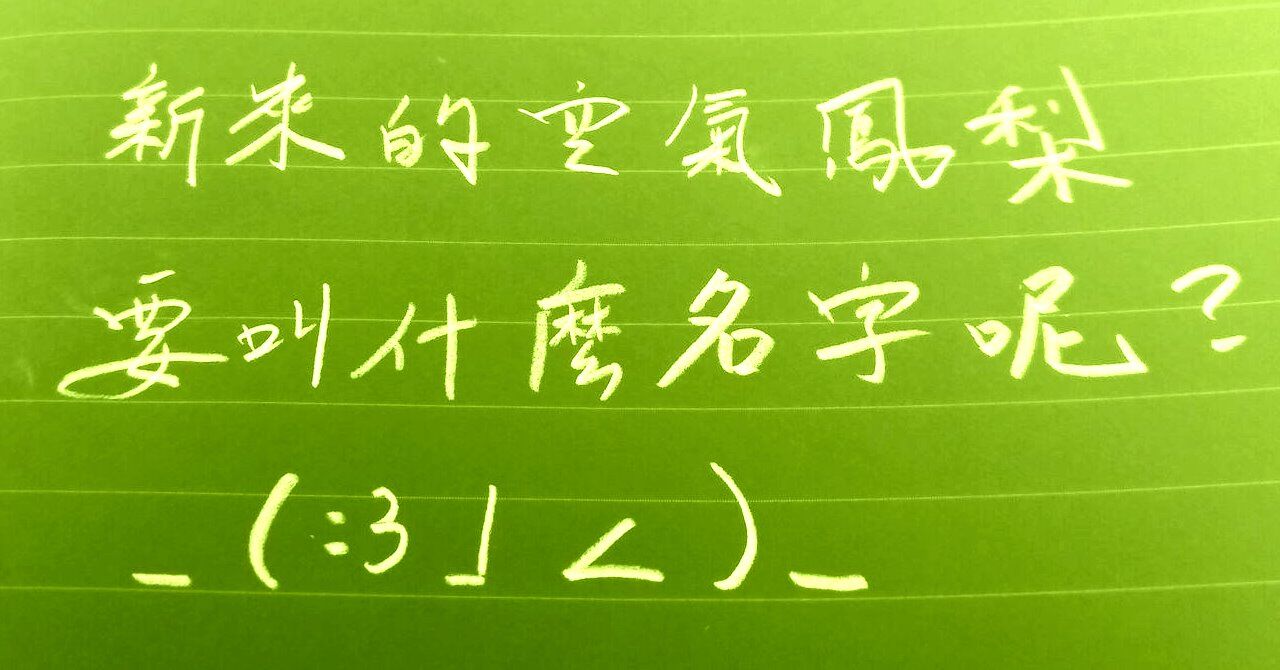 新來的空氣鳳梨
要叫什麼名字呢?
_(:3 」 ∠ )_